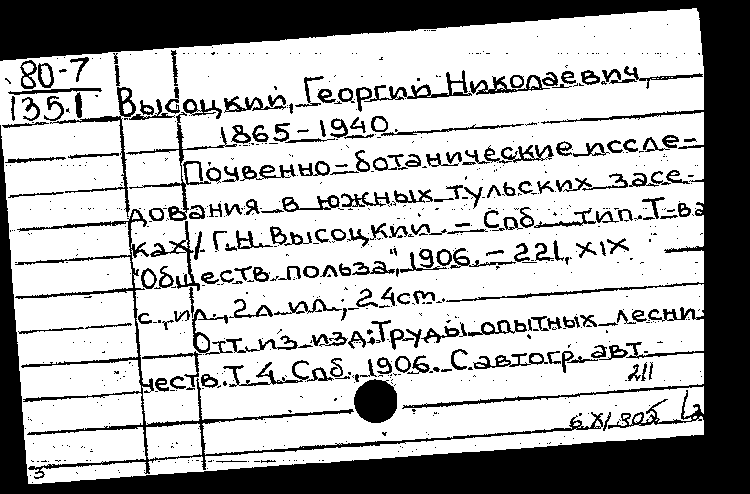 80-7
135.1
Высоцкий, Георгий Николаевич,
1865-1940.
Почвенно-ботанические иссле-
дования в южных тульских засе-
ках / Г.Н. Высоцкий. - Спб. : тип. Т-ва
"Обществ. польза", 1906. - 221, XIX
с., ил., 2 л. ил.; 24 см.
Отт. из изд.: Труды опытных лесни-
честв. Т. 4. Спб., 1906. С автогр. авт.
211
3